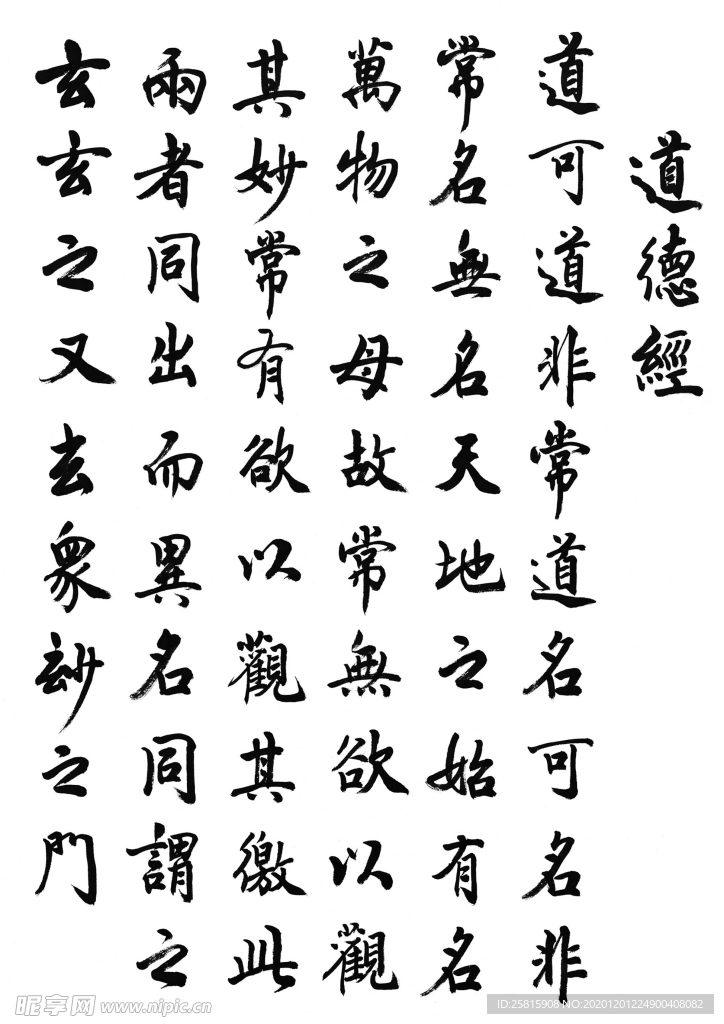 道德經
道可道非常道名可名非
常名無名天地之始有名
萬物之母故常無欲以觀
其妙常有欲以觀其徼此
兩者同出而異名同謂之
玄玄之又玄眾玅之門
昵享网 www.nipic.cn
ID:25815908 NO:20201201224900408082